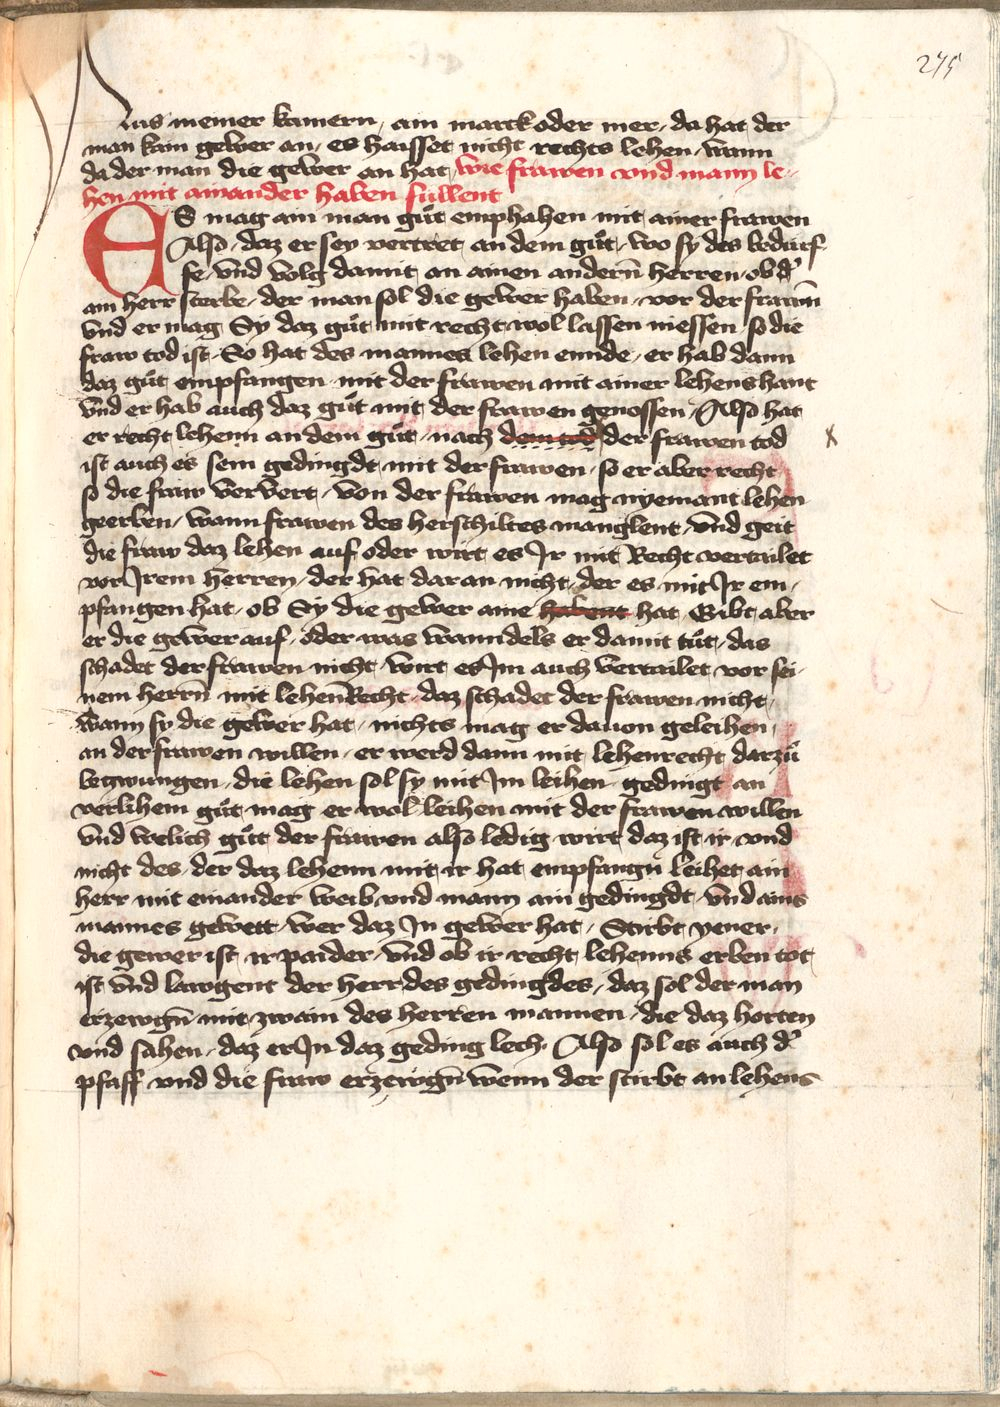 275
Aus meiner kamern, ain marck oder mer, da hat der
man kain gewer an, es haisset nicht rechts lehen, wann
da der man die gewer an hat, wie frawen vnd mann le-
hen mit ainander haben sullent
ES mag ain man gůt emphahen mit ainer frawen
Also, daz er sey vertret an dem gůt, wo sy des bedurf-
fe, vnd volg damit an ainen andern herren, ob dˀ
ain herr sterbe, der man sol die gewer haben, vor der frawen
vnd er mag Sy daz gůt mit recht wol lassen niessen, so die
fraw tod ist, So hat des mannes lehen ennde, er hab dann
daz gůt empfangen mit der frawen mit ainer lehenshant
vnd er hab auch daz gůt mit der frawen genossen, Also hat
er recht lehenn an dem gůt, nach dem tod der frawen tod
ist auch es sein gedingdt mit der frawen, so er aber recht
so die fraw ververt, von der frawen mag nyemant lehen
geerben, wann frawen des herschiltes manglent, vnd geit
die fraw daz lehen auf oder wirt es Jr mit Recht vertailet
vor Jrem herren, der hat daran nicht, der es mit Jr em-
pfangen hat, ob Sy die gewer aine habent hat, Gibt aber
er die gewer auf, oder was wanndels er damit tůt, das
schadet der frawen nicht, wirt es Jm auch vertailet vor sei-
nem herrn mit lehenRecht, daz schadet der frawen nicht,
wann sy die gewer hat, nichts mag er dauon geleihen,
an der frawen willen, er werd dann mit lehenrecht darzů
betzwungen, die lehen sol sy mit Jm leihen, gedingt an
verlihem gůt mag er wol leihen mit der frawen willen
vnd welich gůt der frawen also ledig wirt daz ist ir vnd
nicht des, der daz lehenn mit ir hat empfangn leihet ain
herr mit einander weib vnd mann ain gedingdt, vnd ains
mannes gewett, wer daz Jn gewer hat, Stirbt yener,
die gewer ist ir paider, vnd ob ir recht lehenns erben tot
ist vnd lawgent der herr des gedingdes, daz sol der man
erzewgn mit zwain des herren mannen, die daz horten
vnd sahen, daz er Jn daz geding lech. Also sol es auch dˀ
pfaff vnd die fraw erzewgn wenn der stirbt an lehens